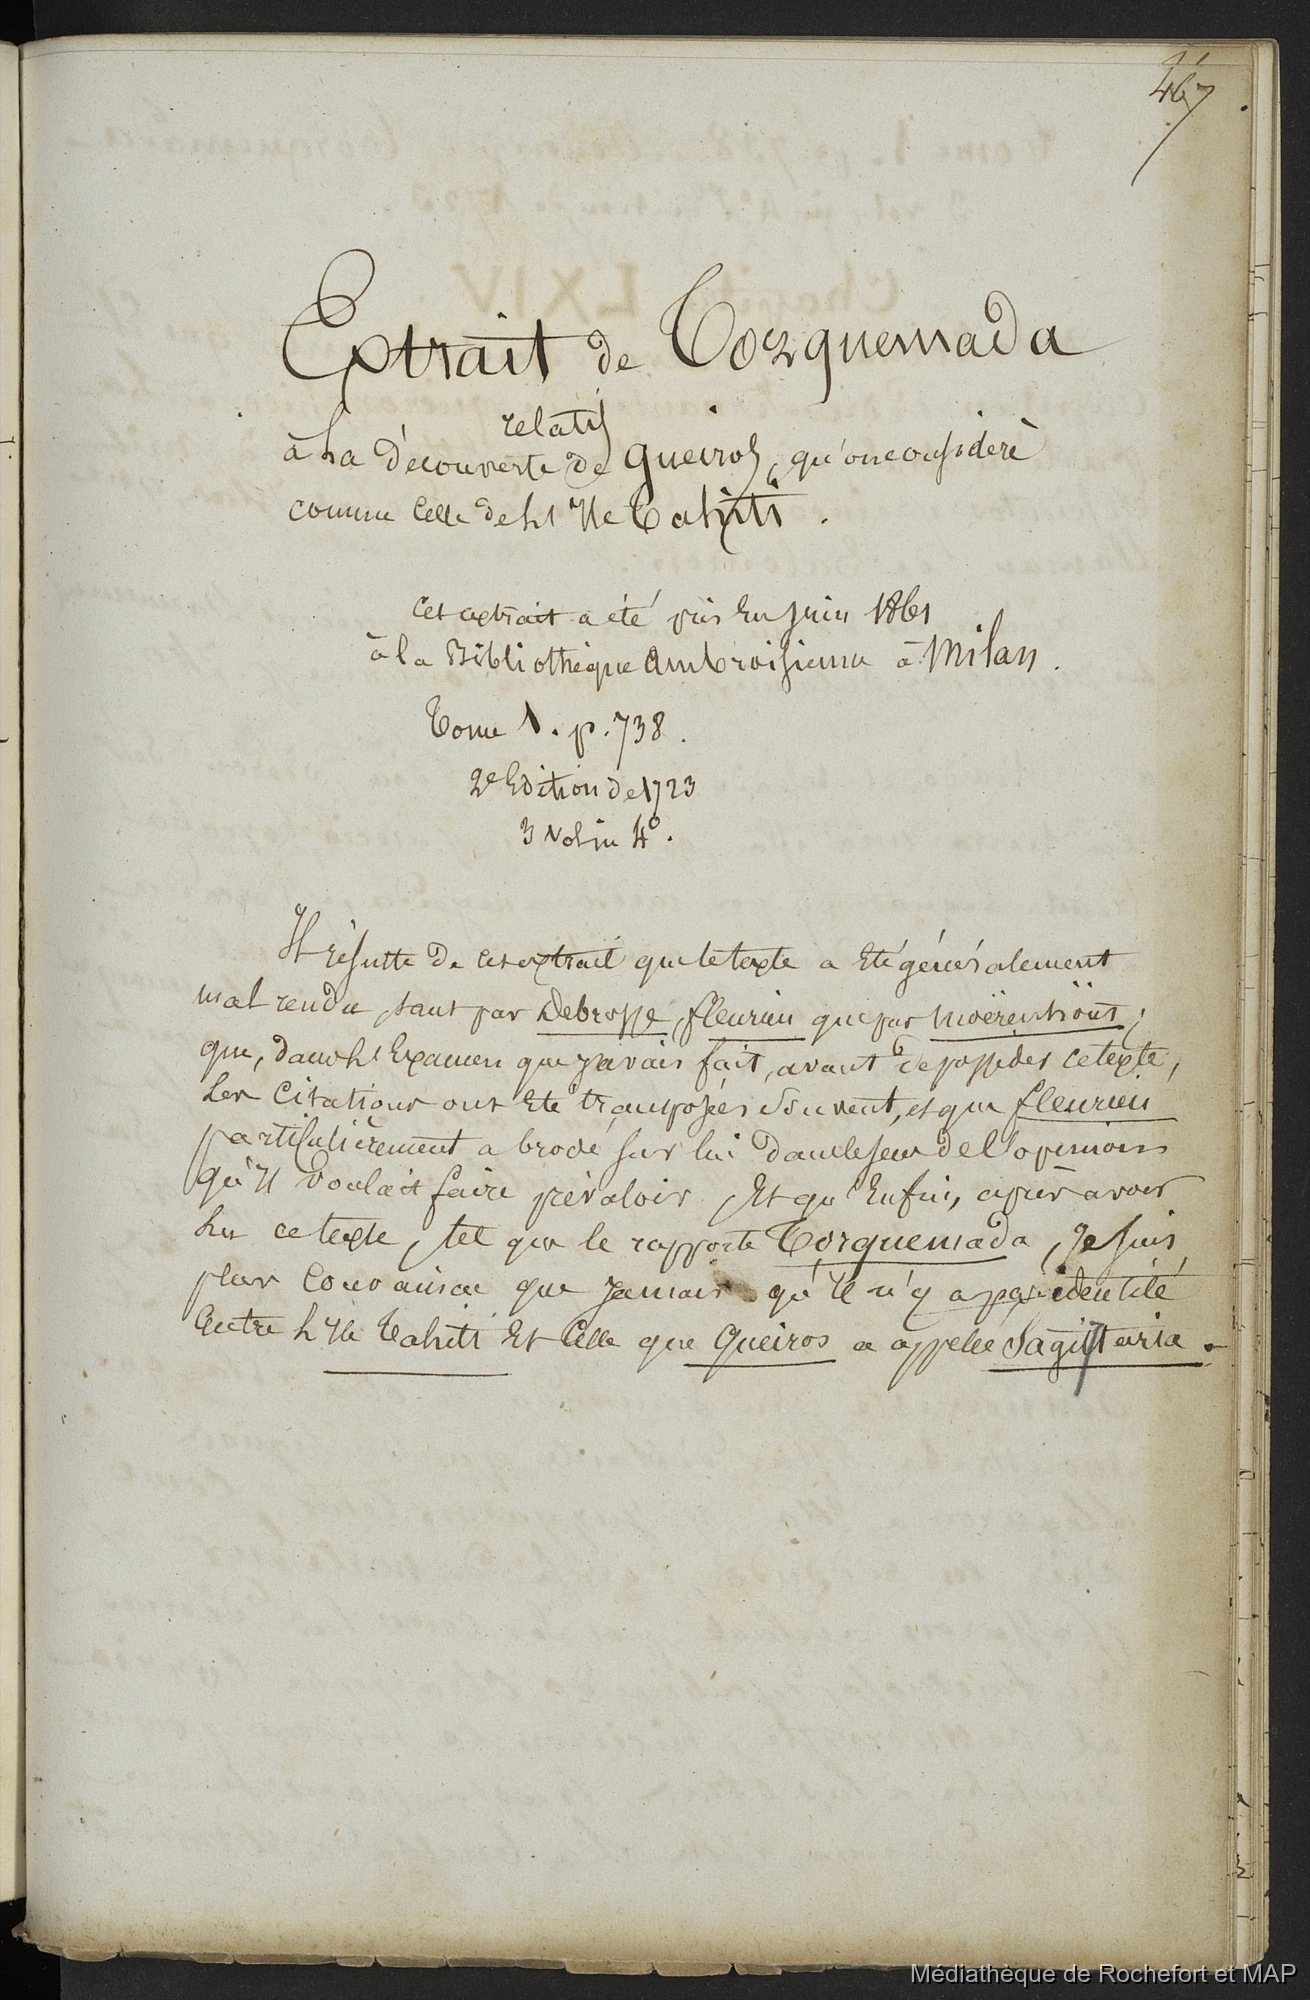 467
Extrait de Torquemada
relatif
à la découverte de Queiros, qu'on considère
comme celle de l'Ile Tahiti.
Cet extrait a été pris En Juin 1861
à la Bibliothèque Ambroisienne à Milan.
Tome 1. p. 738.
2e Edition de 1723
3 vol in 4°.
Il résulte de cet extrait que le texte a Eté généralement
mal rendu, tant par Debrosse, fleurieu que par Moërenhout;
que, dans l'Examen que j'avais fait, avant de posséder ce texte,
les citations ont Eté transposées souvent, et que fleurieu
particulièrement a brodé sur lui dans le sens de l'opinion
qu'Il voulait faire prévaloir, Et qu'Enfin, après avoir
lu ce texte, tel que le rapporte Torquemada, Je suis
plus convaincu que jamais qu'Il n'y a pas identité
Entre l'Ile Tahiti Et Celle que Queiros a appelée Sagittaria.
Médiathèque de Rochefort et MAP